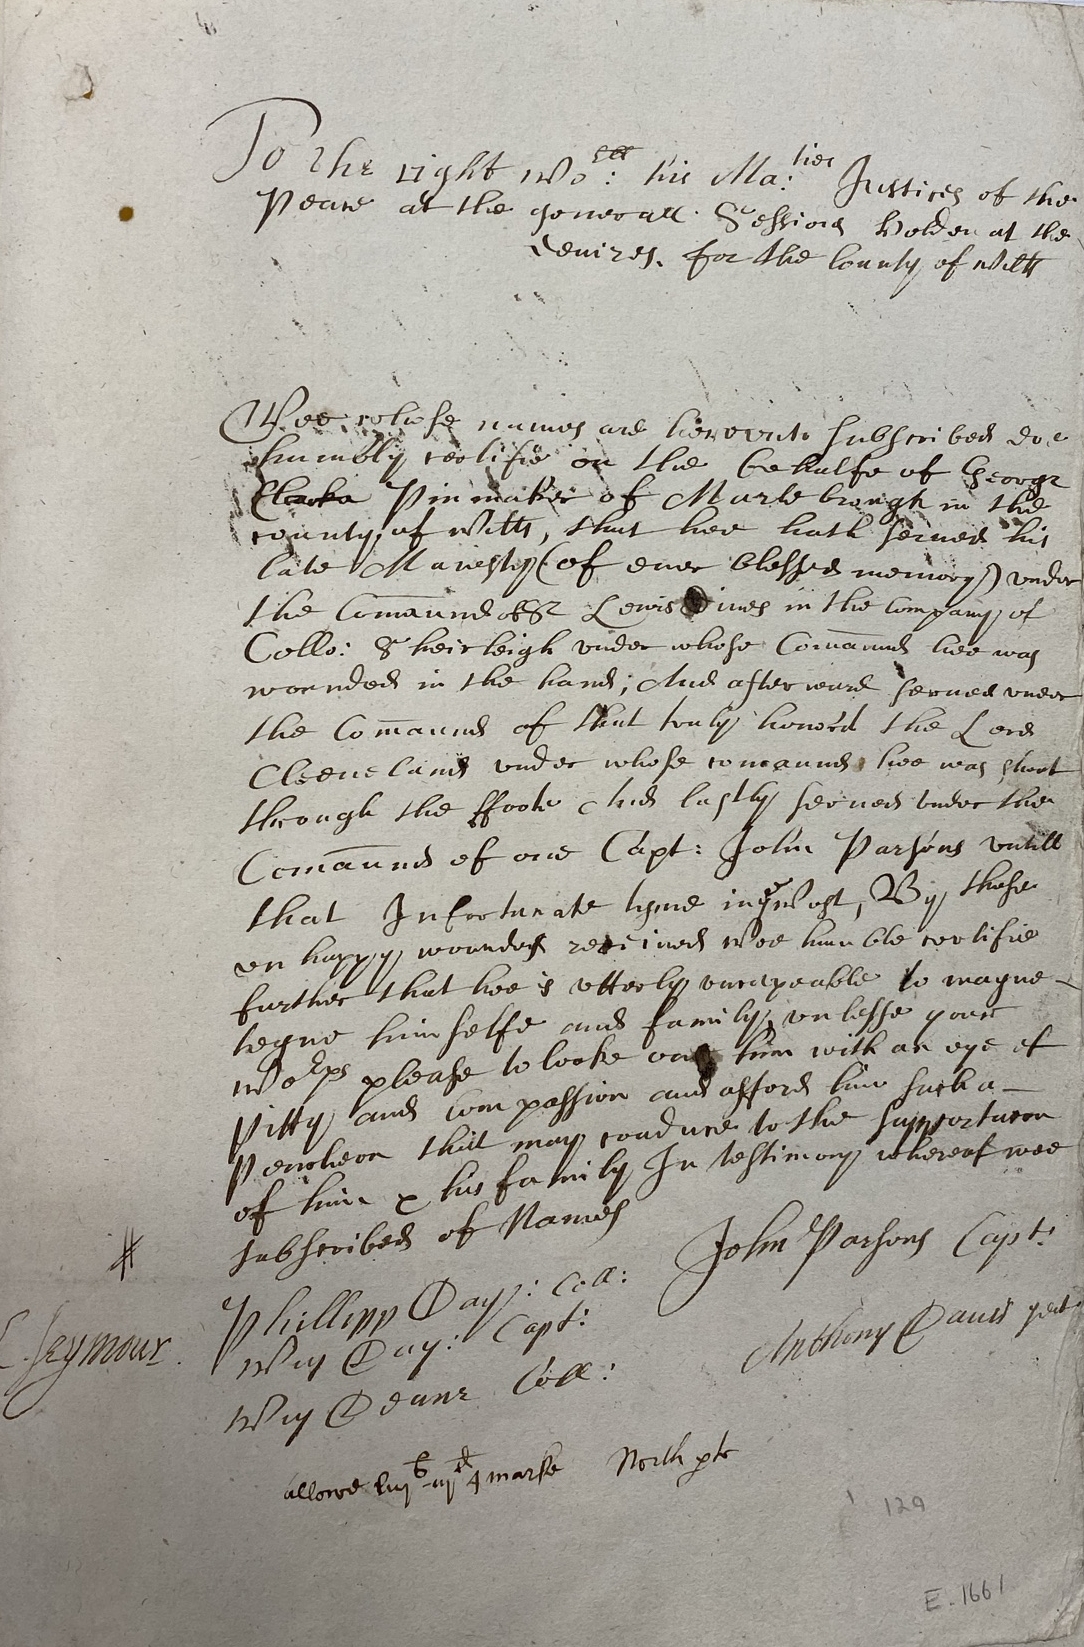 To the right Wo:ll his Ma:ties Justices of the
Peace at the generall Sessions holden at the
devizes, for the County of Wilts
Wee whose names are hereunto subscribed doe
humbly certifie on the behalfe of George
Clarke Pinmaker of Marlebrough in the
county of Wilts, that hee hath served his
late Maiesty (of ever blessed memory) under
the Comaund of Sr Lewis Dives in the Company of
Collo: Sheirleigh under whose Comaund hee was
wounded in the hand; And afterward served under
the Comaund of that truly hono'd the Lord
Cleeveland under whose comaund hee was short
through the ffoote And lastly served under the
Comaund of one Capt: John Parsons untill
that Infortunate tyme in ye West, By these
unhappy woundes received Wee humble certifie
further that hee is utterly uncapeable to mayne-
teyne himselfe and family, unlesse your
Wo:rps please to looke on him with an eye of
Pitty and compassion and afford him such a
Pencheon that may conduce to the supportacon
of him & his family In testimony whereof wee
subscribed of Names
John Parsons Capt:
Phillipp Day: Coll:
Wm Day: Capt:
Anthony Davis gent
E. Seymour.
Wm Deane Coll:
allowe liijs iiijd 4 marke North pte
129
E. 1661